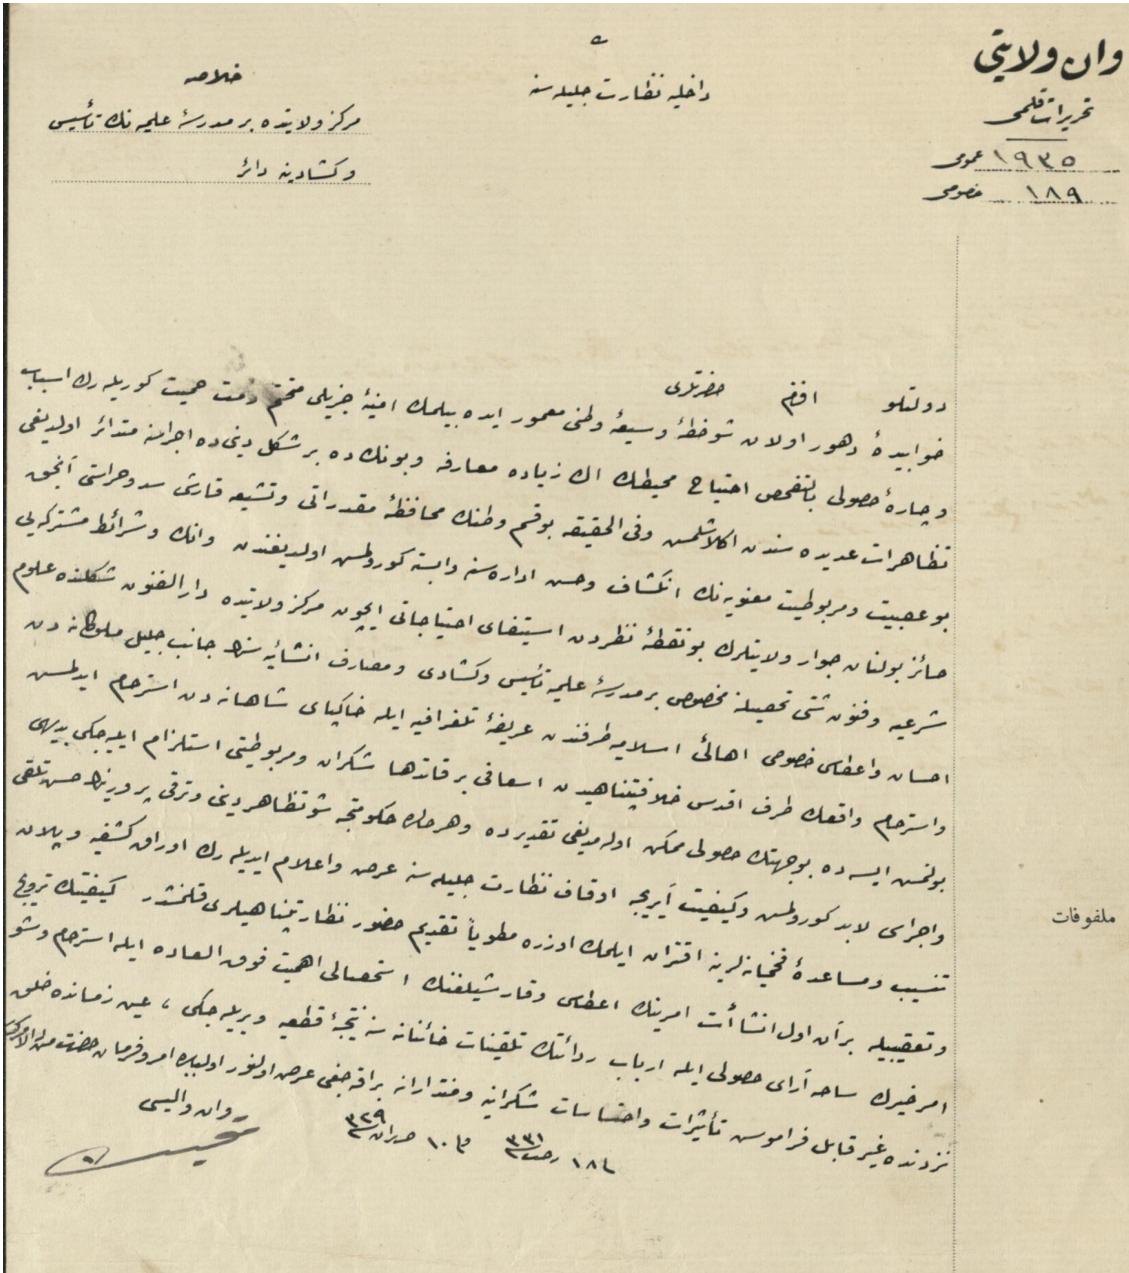 وان ولايتى
تحريرات قلمى
عمومى ١٩٣٥
خصوصى ١٨٩
داخليه نظارت جليله سنه
خلاصه
مركز ولايتده بر مدرسۀ علميه نك تأسيس
و كشادينه دائر
دولتلو افندم حضرتلرى
خوابيدۀ دهور اولان شو خطۀ وسيعۀ وطنى معمور ايده بيلمك امنيۀ جزيلى متحتم ذمت حميت كوريله رك اسباب
و چارۀ حصولى بالتفحص احتياج محيطك اك زياده معارفه و بونك ده بر شكل دينى ده اجراسنه متدائر اولديغى
تظاهرات عديده سندن اكلاشلمش وفى الحقيقه بو قسم وطنك محافظۀ مقدراتى و تشيعه قارشى سد و حراستى آنجق
بو عصبيت و مربوطيت معنويه نك انكشاف و حسن اداره سنه وابسته كورولمش اولديغندن وانك و شرائط مشتركه يى
حائز بولنان جوار ولايتلرك بو نقطۀ نظردن استيفاى احتياجاتى ايچون مركز ولايتده دار الفنون شكلنده علوم
شرعيه و فنون شتى تحصيلنه مخصوص بر مدرسۀ علميه تأسيس و كشادى و مصارف انشائيه سنك جانب جليل ملوكانه دن
احسان و اعطاسى خصوصى اهالئ اسلاميه طرفندن عريضۀ تلغرافيه ايله خاكپاى شاهانه دن استرحام ايدلمش
و استرحام واقعك طرف اقدس خلافتپناهيدن اسعافى بر قاتدها شكران و مربوطيتى استلزام ايليه جكى بديهى
بولنمش ايسه ده بوجهتك حصولى ممكن اوله مديغى تقديرده و هر حالده حكومتجه شو تظاهر دينى و ترقى پرورينك حسن تلقى
و اجراسى لابد كورولمش و كيفيت آيريجه اوقاف نظارت جليله سنه عرض و اعلام ايديله رك اوراق كشفيه و پلان
تنسيب و مساعدۀ فخيمانه لرينه اقتران ايلمك اوزره مطوياً تقديم حضور نظارتپناهيلرى قلنمشدر كيفيتك ترويج
و تعقيبيله بر آن اول انشاآت امرينك اعطاسى و قارشيلغنك استحصالى اهميت فوق العاده ايله استرحام و شو
امر خيرك ساحه آراى حصولى ايله ارباب ردائتك تلقينات خائنانه سنه نتيجۀ قطعيه ويريله جكى ، عين زمانده خلق
نزدنده غير قابل فراموش تأثيرات و احتساسات شكرانيه و منتدارانه براقه جغى عرض اولنور اولبابده امر و فرمان حضرت من له الامركدر
فى ١٨ رجب ٣٣١ و فى ١٠ حزيران ٣٢٩
وان واليسى
تحسين
ملفوفات